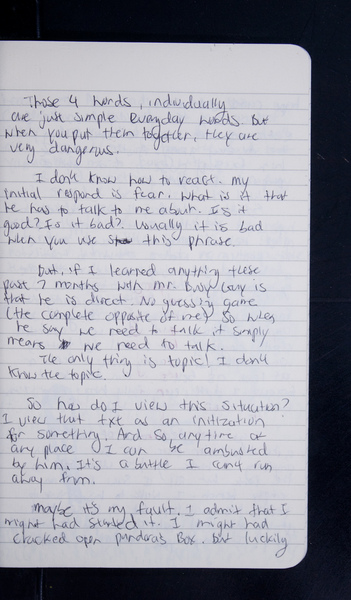 Those 4 words, individually
are just simple everyday words. but
when you put them together, they are
very dangerous.
I don't know how to react. my
initial respond is fear. what is it that
he has to talk to me about. Is it
good? Is it bad? Usually it is bad
when you use this phrase.
but, if I learned anything these
past 7 months with mr. busy guy is
that he is direct. No guessing game
(the complete opposite of me) So when
he say we need to talk it simply
means we need to talk.
The only thing is topic! I don't
know the topic.
So how do I view this situation?
I view that txt as an initization
for something. And so anytime or
any place I can be ambushed
by him. It's a battle I can't run
away from.
maybe it's my fault. I admit that I
might had started it. I might had
cracked open pandora's box. but luckily